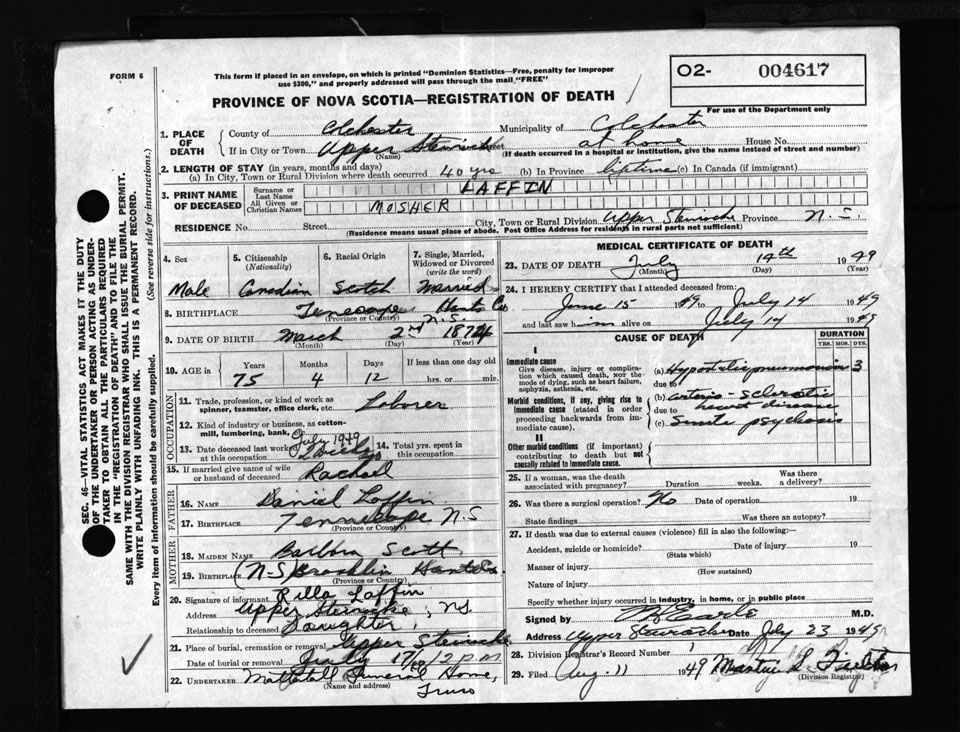 FORM 6
This form if placed in an envelope, on which is printed "Dominion Statistics—Free, penalty for improper
use $300," and properly addressed will pass through the mail "FREE"
PROVINCE OF NOVA SCOTIA—REGISTRATION OF DEATH
O2- 004617
For use of the Department only
1. PLACE OF DEATH
County of Colchester Municipality of Colchester
If in City or Town Upper Stewiacke Street at home House No.
(Name) (If death occurred in a hospital or institution, give the name instead of street and number)
2. LENGTH OF STAY (in years, months and days)
(a) In City, Town or Rural Division where death occurred 40 yrs (b) In Province lifetime (c) In Canada (if immigrant)
3. PRINT NAME OF DECEASED
Surname or Last Name LAFFIN
All Given or Christian Names MOSHER
RESIDENCE No. Street City, Town or Rural Division Upper Stewiacke Province N.S.
(Residence means usual place of abode. Post Office Address for residents in rural parts not sufficient)
4. Sex
Male
5. Citizenship
(Nationality)
Canadian
6. Racial Origin
Scotch
7. Single, Married, Widowed or Divorced
(write the word)
Married
8. BIRTHPLACE Tenecape Hants Co
N.S.
(Province or Country)
9. DATE OF BIRTH March 2nd 1874
(Month) (Day) (Year)
10. AGE in Years Months Days If less than one day old
75 4 12 hrs. or min.
OCCUPATION
11. Trade, profession or kind of work as
spinner, teamster, office clerk, etc. Laborer
12. Kind of industry or business, as cotton-
mill, lumbering, bank, etc.
13. Date deceased last worked July 1949
14. Total yrs. spent in
occupation
15. If married give name of wife
or husband of deceased Rachael
FATHER
16. NAME Daniel Laffin
17. BIRTHPLACE Tennecape N.S
(Province or Country)
MOTHER
18. MAIDEN NAME Barbara Scott
19. BIRTHPLACE (N-S) Brooklin Hants Co.
(Province or Country)
20. Signature of informant Rilla Laffin
Address Upper Stewiacke, N.S.
Relationship to deceased Daughter
21. Place of burial, cremation or removal Upper Stewiacke
Date of burial or removal July 17th 2 P.M
22. UNDERTAKER Mattatall Funeral Home,
(Name and address) Truro
MEDICAL CERTIFICATE OF DEATH
23. DATE OF DEATH July 14th 1949
(Month) (Day) (Year)
24. I HEREBY CERTIFY that I attended deceased from:
June 15 1949 to July 14 1949
and last saw him alive on July 14 1949
CAUSE OF DEATH
DURATION
YRS. MOS. DYS.
I
Immediate cause
Give disease, injury or complica-
tion which caused death, not the
mode of dying, such as heart failure,
asphyxia, asthenia, etc.
(a) Hypostatic pneumonia 3
due to
Morbid conditions, if any, giving rise to
immediate cause (stated in order
proceeding backwards from im-
mediate cause).
(b) arterio-sclerotic
due to heart disease
(c) Senile psychosis
II
Other morbid conditions (if important)
contributing to death but not
causally related to immediate cause.
25. If a woman, was the death
associated with pregnancy? Duration weeks. Was there
a delivery?
26. Was there a surgical operation? No Date of operation 19
State findings Was there an autopsy?
27. If death was due to external causes (violence) fill in also the following:—
Accident, suicide or homicide? Date of injury 19
(State which)
Manner of injury
(How sustained)
Nature of injury
Specify whether injury occurred in industry, in home, or in public place
Signed by Earle M.D.
Address Upper Stewiacke Date July 23 1949
28. Division Registrar's Record Number
29. Filed Aug. 11 1949 Martin
(Division Registrar)
SEC. 46—VITAL STATISTICS ACT MAKES IT THE DUTY
OF THE UNDERTAKER OR PERSON ACTING AS UNDER-
TAKER TO OBTAIN ALL THE PARTICULARS REQUIRED
IN THE "REGISTRATION OF DEATH" AND TO FILE THE
SAME WITH THE DIVISION REGISTRAR WHO SHALL ISSUE THE BURIAL PERMIT.
WRITE PLAINLY WITH UNFADING INK. THIS IS A PERMANENT RECORD.
Every item of information should be carefully supplied. (See reverse side for instructions.)